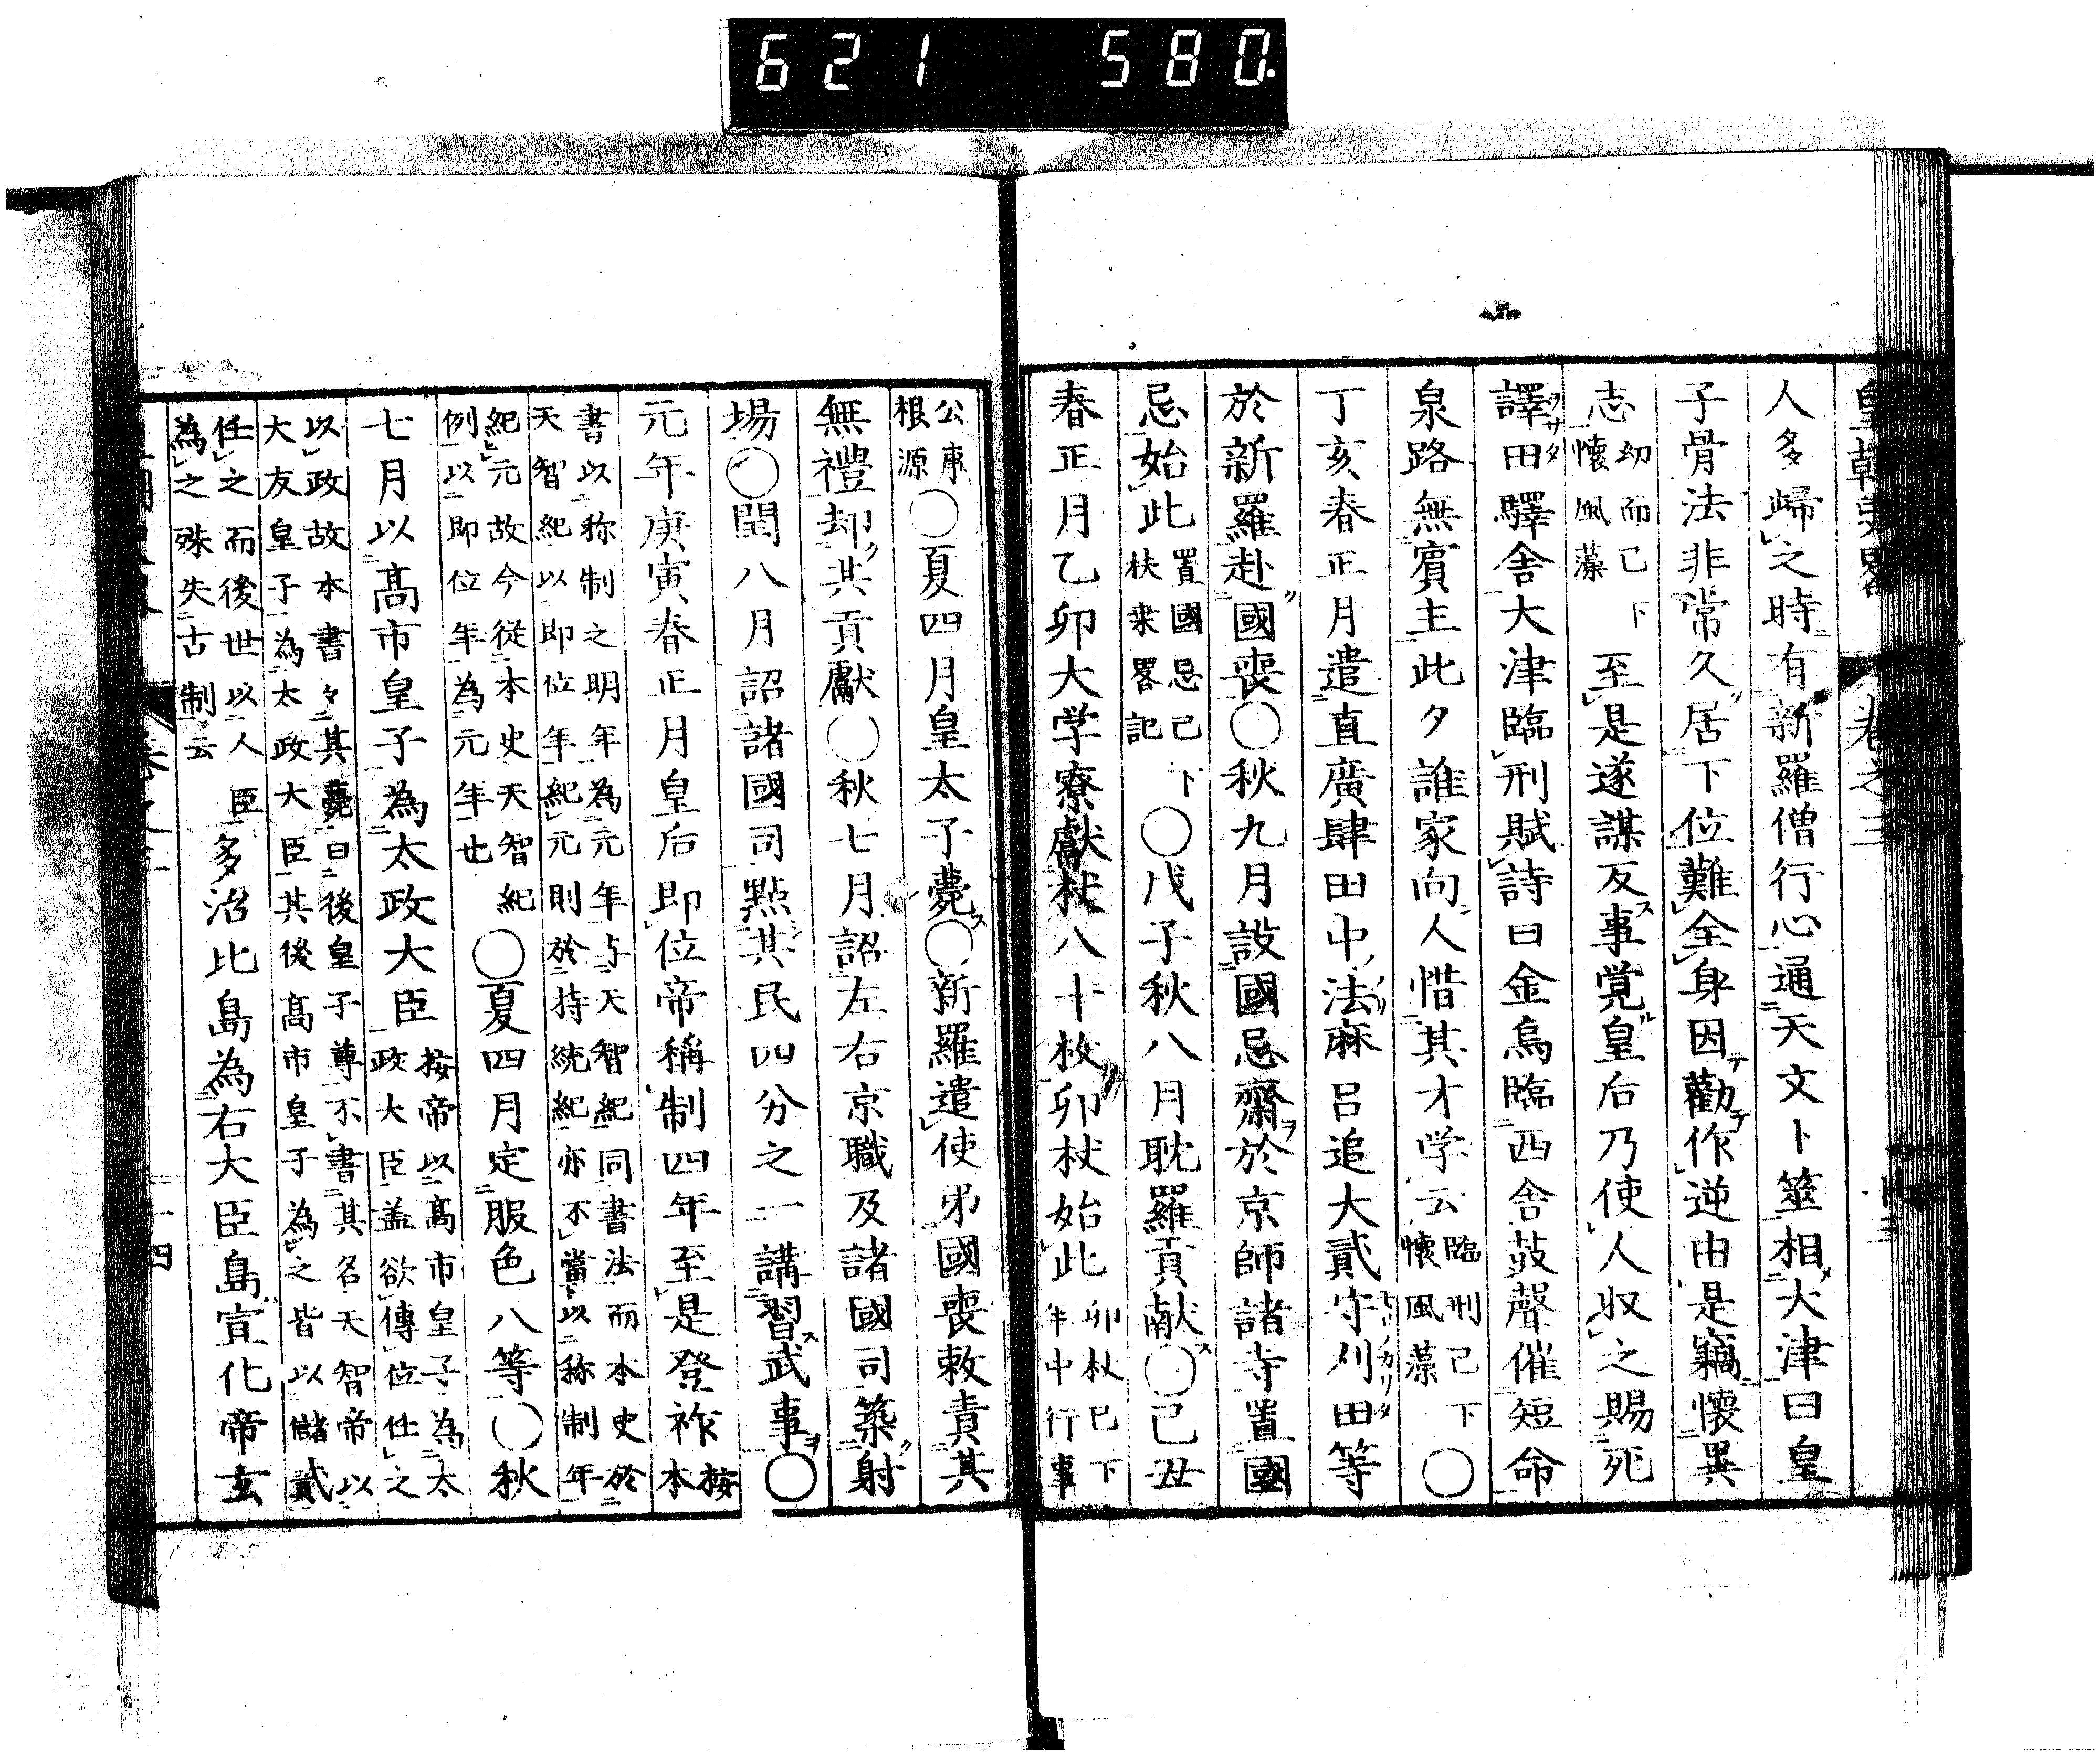 621 580.
皇朝史畧 卷之三
人多歸之時有新羅僧行心通天文卜筮相大津曰皇
子骨法非常久居下位難全身因勸作逆由是竊懷異
志幼而已下懷風藻至是遂謀反事覚皇后乃使人収之賜死
譯田驛舍大津臨刑賦詩曰金烏臨西舍鼓聲催短命
泉路無賓主此夕誰家向人惜其才学云臨刑已下懷風藻〇
丁亥春正月遣直廣肆田中法麻呂追大貳守刈田等
於新羅赴國喪〇秋九月設國忌齋於京師諸寺置國
忌始此置國忌已下扶桒畧記〇戊子秋八月耽羅貢献〇己丑
春正月乙卯大学寮獻杖八十枚卯杖始此卯杖已下年中行事
公事根源〇夏四月皇太子薨〇新羅遣使弔國喪敕責其
無禮却其貢獻〇秋七月詔左右京職及諸國司築射
場〇閏八月詔諸國司點其民四分之一講習武事〇
元年庚寅春正月皇后即位帝稱制四年至是登祚按本
書以称制之明年為元年与天智紀同書法而本史於
天智紀以即位年紀元則於持統紀亦不當以称制年
紀元故今從本史天智紀
例以即位年為元年也〇夏四月定服色八等〇秋
七月以髙市皇子為太政大臣按帝以髙市皇子為太
政大臣盖欲傳位任之
以政故本書々其薨曰後皇子尊不書其名天智帝以
大友皇子為太政大臣其後髙市皇子為之皆以儲貳
任之而後世以人臣
為之殊失古制云多治比島為右大臣島宣化帝玄